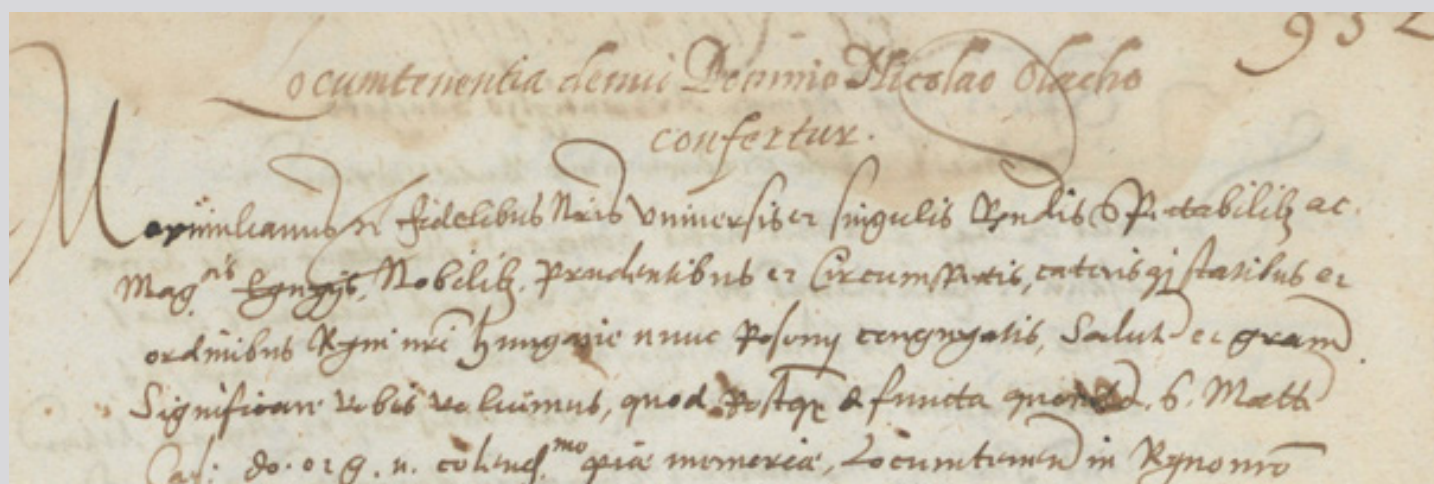 932
Locumtenentia denuo Domino Nicolao Olacho
confertur.
Maximilianus etc fidelibus Nris Vniuersis et singulis Rndis Spectabilib ac
Mag.cis Egregijs, Nobilib. Prudentibus et Circumspectis, caeterisq statibus et
ordinibus Regni nri Hungarie nunc Posonij congregatis, Salut et gram
Significare vobis volumus, quod postqm defuncta S. Matte
do. et g. n. colend.mo piae memoriae, Locumtenen in Regno nro